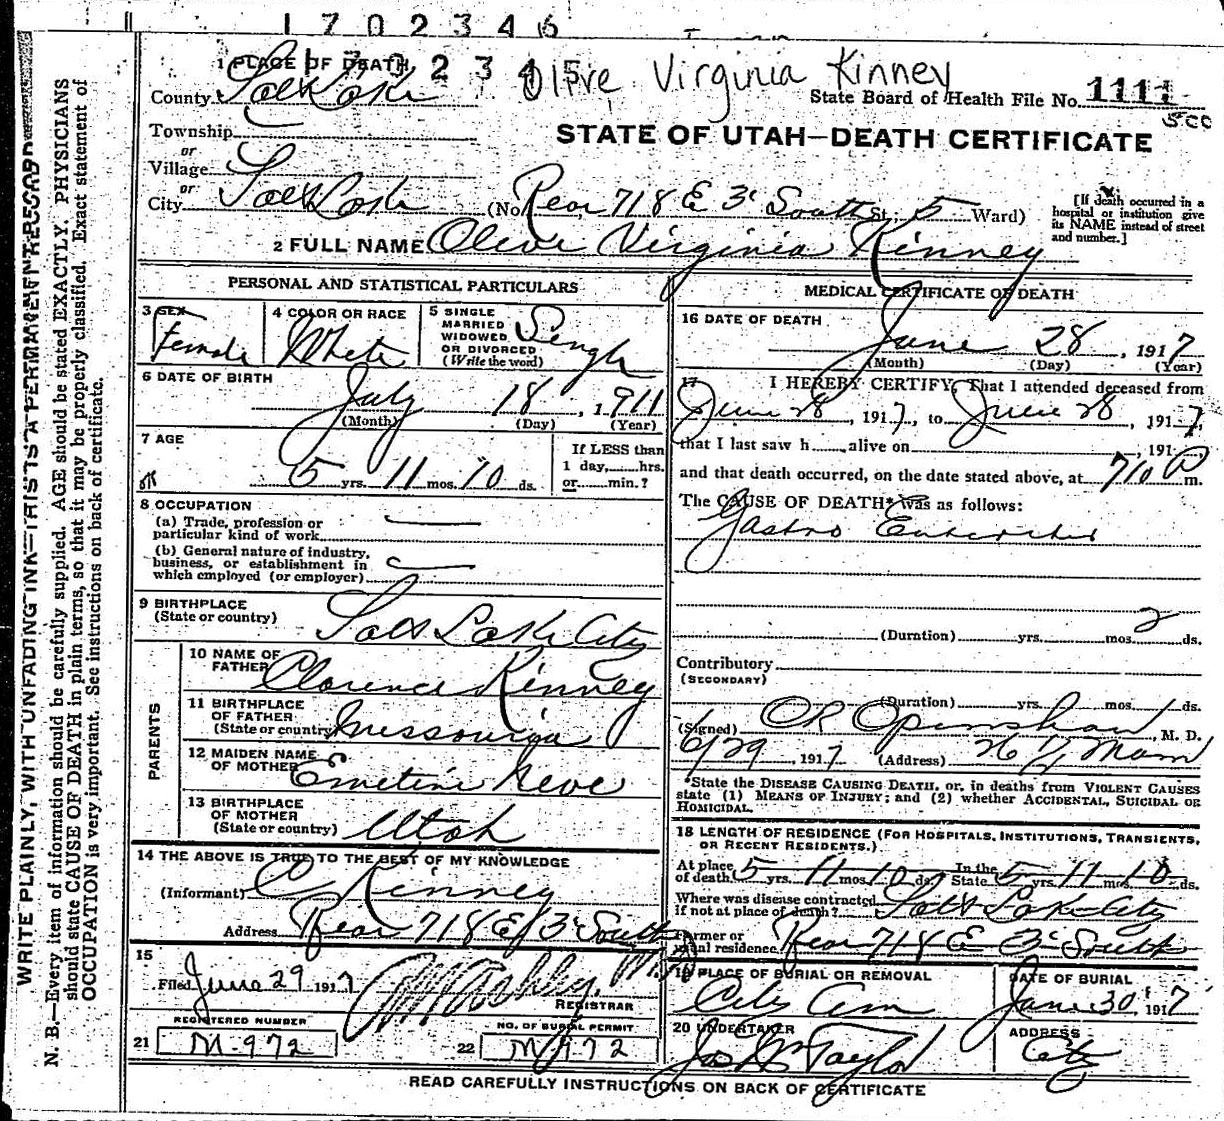 1702346
1 PLACE OF DEATH, 1702345 Olive Virginia Kinney
County Salt Lake State Board of Health File No. 1111
Township
or STATE OF UTAH—DEATH CERTIFICATE
Village
or
City Salt Lake (No. Rear 718 E 3' South St. 5 Ward)
[If death occurred in a
hospital or institution give
its NAME instead of street
and number.]
2 FULL NAME Olive Virginia Kinney
PERSONAL AND STATISTICAL PARTICULARS
3 SEX
Female
4 COLOR OR RACE
White
5 SINGLE
MARRIED
WIDOWED
OR DIVORCED
(Write the word)
Single
6 DATE OF BIRTH
July 18, 1911
(Month) (Day) (Year)
7 AGE
5 yrs. 11 mos. 10 ds.
If LESS than
1 day,......hrs.
or......min.?
8 OCCUPATION
(a) Trade, profession or
particular kind of work
(b) General nature of industry,
business, or establishment in
which employed (or employer)
9 BIRTHPLACE
(State or country) Salt Lake City
PARENTS
10 NAME OF
FATHER Clarence Kinney
11 BIRTHPLACE
OF FATHER
(State or country) Missouria
12 MAIDEN NAME
OF MOTHER Emetine Neve
13 BIRTHPLACE
OF MOTHER
(State or country) Utah
14 THE ABOVE IS TRUE TO THE BEST OF MY KNOWLEDGE
(Informant) C Kinney
Address Rear 718 E 3' South
15
Filed June 29 1917 REGISTRAR
REGISTERED NUMBER
21 M-972
NO. OF BURIAL PERMIT
22 M972
MEDICAL CERTIFICATE OF DEATH
16 DATE OF DEATH
June 28, 1917
(Month) (Day) (Year)
17 I HEREBY CERTIFY, That I attended deceased from
June 28, 1917, to June 28, 1917,
that I last saw h...... alive on , 191
and that death occurred, on the date stated above, at 710 P m.
The CAUSE OF DEATH* was as follows:
Gastro Enteritis
(Duration) yrs. mos. 2 ds.
Contributory
(SECONDARY)
(Duration) yrs. mos. ds.
(Signed) OR Openshaw, M. D.
6/29, 1917 (Address) 26 1/2 Main
*State the DISEASE CAUSING DEATH, or, in deaths from VIOLENT CAUSES
state (1) MEANS OF INJURY; and (2) whether ACCIDENTAL, SUICIDAL OR
HOMICIDAL.
18 LENGTH OF RESIDENCE (FOR HOSPITALS, INSTITUTIONS, TRANSIENTS,
OR RECENT RESIDENTS.)
At place
of death 5 yrs. 11 mos. 10 ds. In the
State 5 yrs. 11 mos. 10 ds.
Where was disease contracted
if not at place of death? Salt Lake City
Former or
usual residence Rear 718 E 3' South
19 PLACE OF BURIAL OR REMOVAL
City Cem
DATE OF BURIAL
June 30, 1917
20 UNDERTAKER
Jos Wm Taylor
ADDRESS
City
READ CAREFULLY INSTRUCTIONS ON BACK OF CERTIFICATE
WRITE PLAINLY, WITH UNFADING INK—THIS IS A PERMANENT RECORD
N. B.—Every item of information should be carefully supplied. AGE should be stated EXACTLY. PHYSICIANS
should state CAUSE OF DEATH in plain terms, so that it may be properly classified. Exact statement of
OCCUPATION is very important. See instructions on back of certificate.